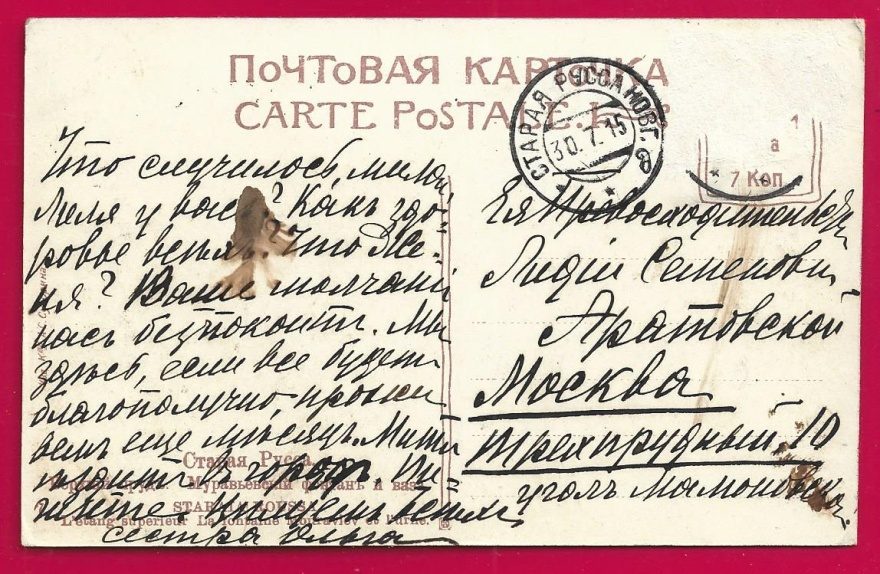 ПОЧТОВАЯ КАРТОЧКА
CARTE POSTALE.
СТАРАЯ РУССА НОВГ.
30.7.15
1
а
7 Коп
Что случилось, милая
Леля у васъ? Какъ здо-
ровье всѣхъ? Что Же-
ня? Ваше молчаніе
насъ безпокоитъ. Мы
здѣсь, если все будетъ
благополучно, прожи
вемъ еще мѣсяцъ. Митя
сестра Ольга
Ея Превосходительству
Лидіи Семеновнѣ
Аратовской
Москва
Трехпрудный 10
уголъ Мамоновскаго
Старая Русса.
Муравьевскій фонтанъ и ваза.
STARAIA ROUSSA.
L'étang supérieur La fontaine Mouraviev et l'urne.